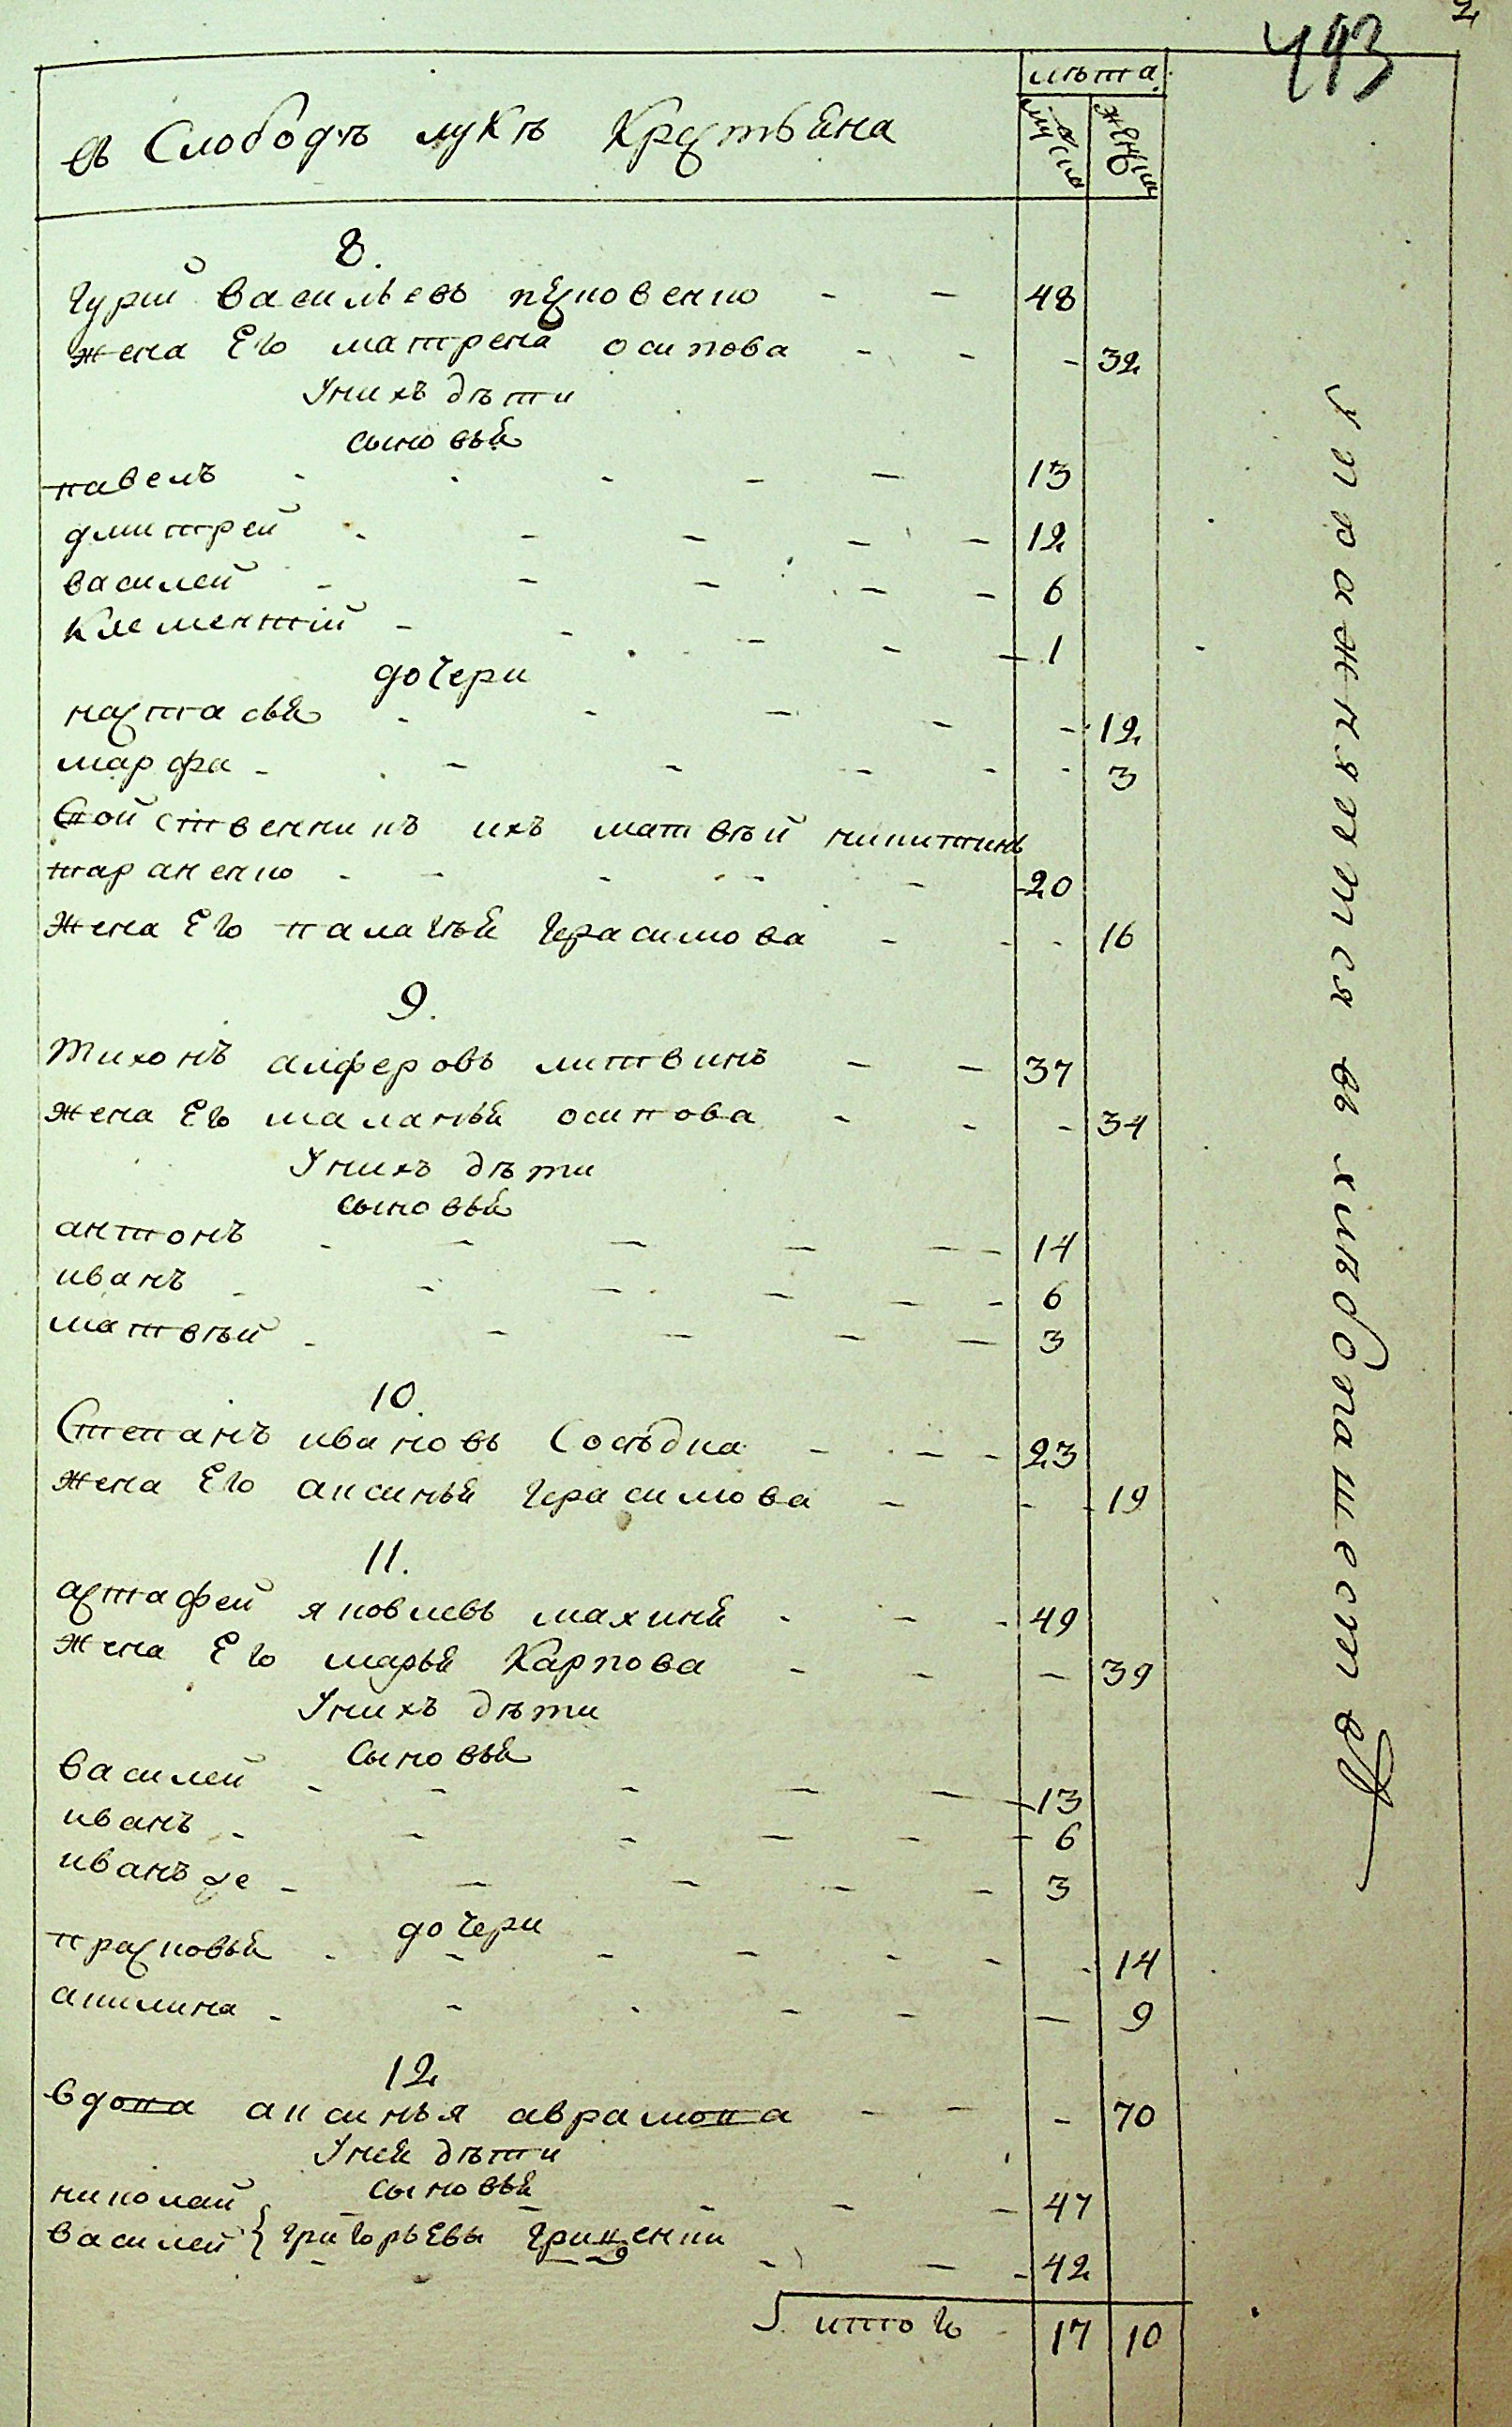 493
2
въ Слободѣ лукѣ Крестьяна
лѣта
мужес
женщи
8.
гурий васильевъ пуховенко 48
жена Его матрена осипова 32
У нихъ дѣти
сыновья
павелъ 13
дмитрей 12
василей 6
Клементий 1
дочери
настасья 12
марфа 3
Свойственникъ ихъ матвѣй никитинъ
тараненко 20
жена Его палагѣя герасимова 16
9.
тихонъ алферовъ литвинъ 37
жена Его маланья осипова 34
У нихъ дѣти
сыновья
антонъ 14
иванъ 6
матвѣй 3
10.
Степанъ ивановъ Сосѣдка 23
жена Его аксинья герасимова 19
11.
астафей яковлевъ махиня 49
жена Его марья Карпова 39
У нихъ дѣти
Сыновья
василей 13
иванъ 6
иванъ же 3
дочери
прасковья 14
акилина 9
12
вдова аксинья аврамова 70
У ней дѣти
сыновья
николай 47
василей } григорьевы гриценки 42
итого 17 10
упражняется въ хлебопашестве